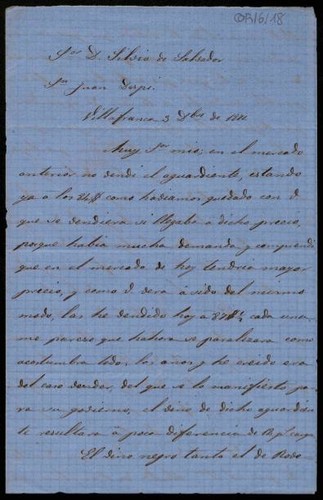 OP/6/18
Sor. D. Silvio de Salvador
Sn. Juan Despi.
Villafranca 3 Dbre de 18
Muy Sr. mio; en el mercado
anterior no bendi el aguardiente, estando
ya a los como habiamos quedado con V.
que se bendiera si llegaba a dicho precio,
porque habia mucha demanda y comprendi
que en el mercado de hoy tendria mayor
precio, y como V. bera á sido del mismo
modo, las he bendido hoy a cada una
me parece que habra se paralizara como
acostumbra todos los años, y he creido era
del caso bender, del que se lo manifiesto pa
ra su gobierno, el bino de dicho aguardien
te resultara á poca diferencia de
El bino negro tanto el de